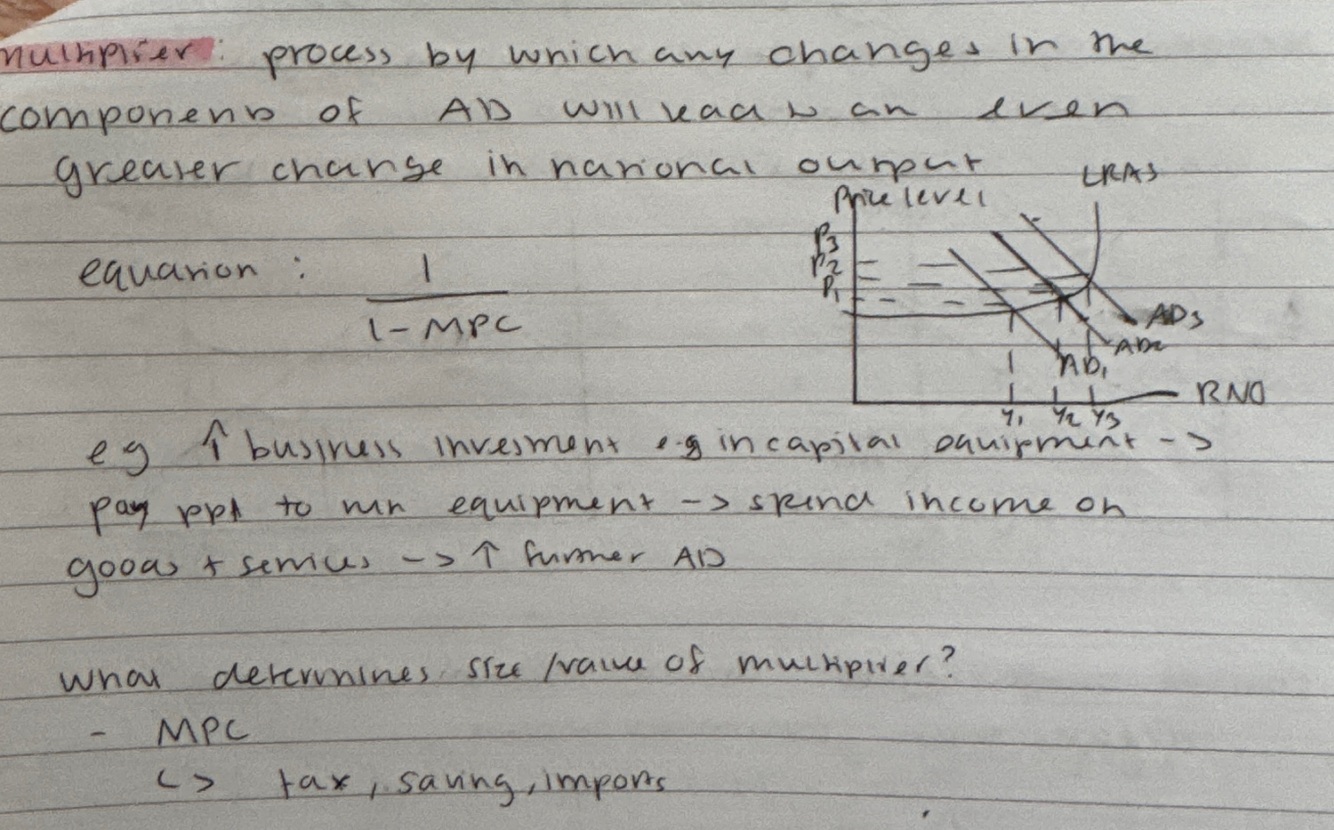 multiplier: process by which any changes in the
components of AD will lead to an even
greater change in national output
LRAS
Price level
P3
P2
P1
equation : 1
1 - MPC
AD3
AD2
AD1
RNO
Y1 Y2 Y3
eg ↑ business invesment e.g in capital equipment ->
pay ppl to run equipment -> spend income on
goods + services -> ↑ further AD
What determines size /value of multiplier?
- MPC
↳ tax, saving, imports